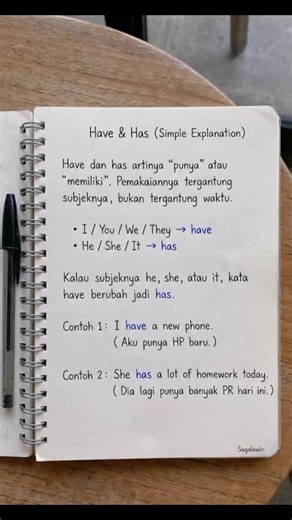 Have & Has (Simple Explanation)
Have dan has artinya "punya" atau
"memiliki". Pemakaiannya tergantung
subjeknya, bukan tergantung waktu.
• I / You / We / They → have
• He / She / It → has
Kalau subjeknya he, she, atau it, kata
have berubah jadi has.
Contoh 1: I have a new phone.
( Aku punya HP baru. )
Contoh 2: She has a lot of homework today.
( Dia lagi punya banyak PR hari ini. )
Sugolowin